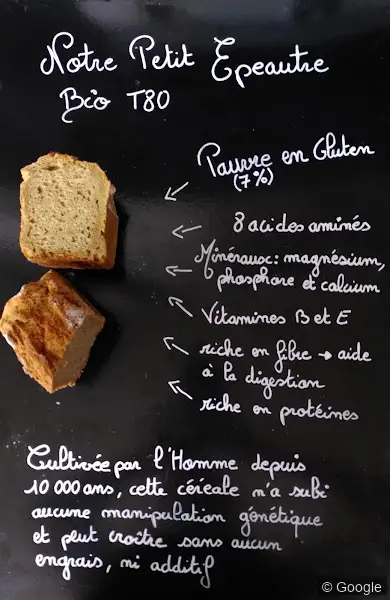 Notre Petit Epeautre
Bio T80
Pauvre en Gluten
(7%)
8 acides aminés
Minéraux: magnésium,
phosphore et calcium
Vitamines B et E
riche en fibre → aide
à la digestion
riche en protéines
Cultivée par l'Homme depuis
10 000 ans, cette céreale n'a subi
aucune manipulation génétique
et peut croître sans aucun
engrais, ni additif
© Google